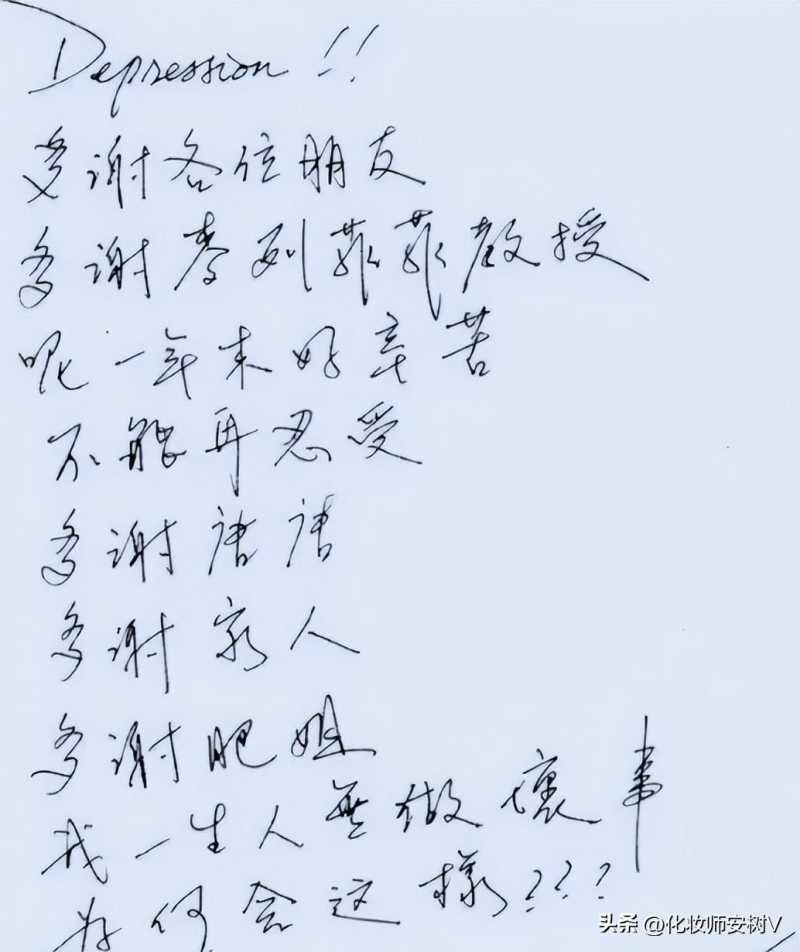 Depression !!
多謝各位朋友
多謝麥列菲菲教授
呢一年來好辛苦
不能再忍受
多謝唐唐
多謝家人
多謝肥姐
我一生人無做壞事
為何會這樣???
头条 @化妆师安树V